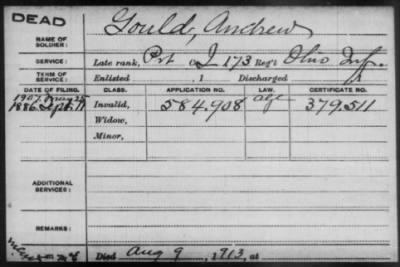 DEAD
Gould, Andrew
NAME OF
SOLDIER:
SERVICE: Late rank, Pvt Co I 173 Reg't Ohio Inf.
TERM OF
SERVICE: Enlisted , 1 Discharged
DATE OF FILING. CLASS. APPLICATION NO. LAW. CERTIFICATE NO.
1886 Sept. 11 Invalid, 584.908 379.511
Widow,
Minor,
ADDITIONAL
SERVICES:
REMARKS:
Died Aug 9 , 1913, at